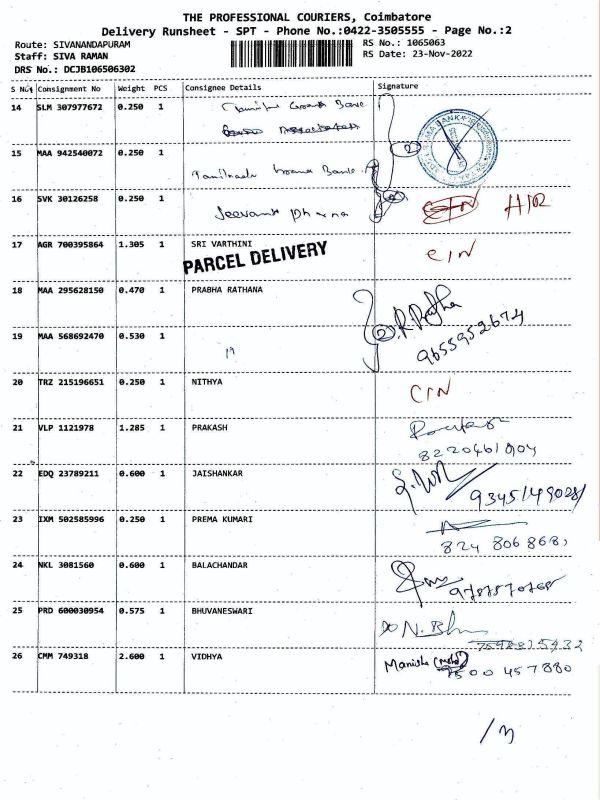 THE PROFESSIONAL COURIERS, Coimbatore
Delivery Runsheet - SPT - Phone No.:0422-3505555 - Page No.:2
Route: SIVANANDAPURAM
RS No.: 1065063
Staff: SIVA RAMAN
RS Date: 23-Nov-2022
DRS No.: DCJB106506302
S No. Consignment No Weight PCS Consignee Details Signature
14 SLM 307977672 0.250 1
15 MAA 942540072 0.250 1 2
Tamilnadu Bank
16 SVK 30126258 0.250 1 CIN HIR
Jeevans Pharma
17 AGR 700395864 1.305 1 SRI VARTHINI CIN
PARCEL DELIVERY
18 MAA 295628150 0.470 1 PRABHA RATHANA R. Prabha
19 MAA 568692470 0.530 1 19 2 9655952674
20 TRZ 215196651 0.250 1 NITHYA CIN
21 VLP 1121978 1.285 1 PRAKASH
8220461904
22 EDQ 23789211 0.600 1 JAISHANKAR
9345149028
23 IXM 502585996 0.250 1 PREMA KUMARI
824 806868
24 NKL 3081560 0.600 1 BALACHANDAR
25 PRD 600030954 0.575 1 BHUVANESWARI N. Bh
26 CMM 749318 2.600 1 VIDHYA Manisha
7500 457880